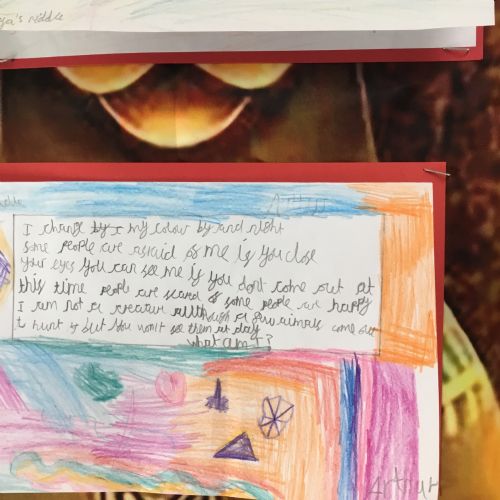 's riddle
Arthur
I change by I my colour by and night
some people are afraid of me if you close
your eyes you can see me if you dont come out at
this time people are scared of some people are happy
I am not a creature allthough a few aimals come out
t hunt if but you won't see them at day
what am I?
Arthur